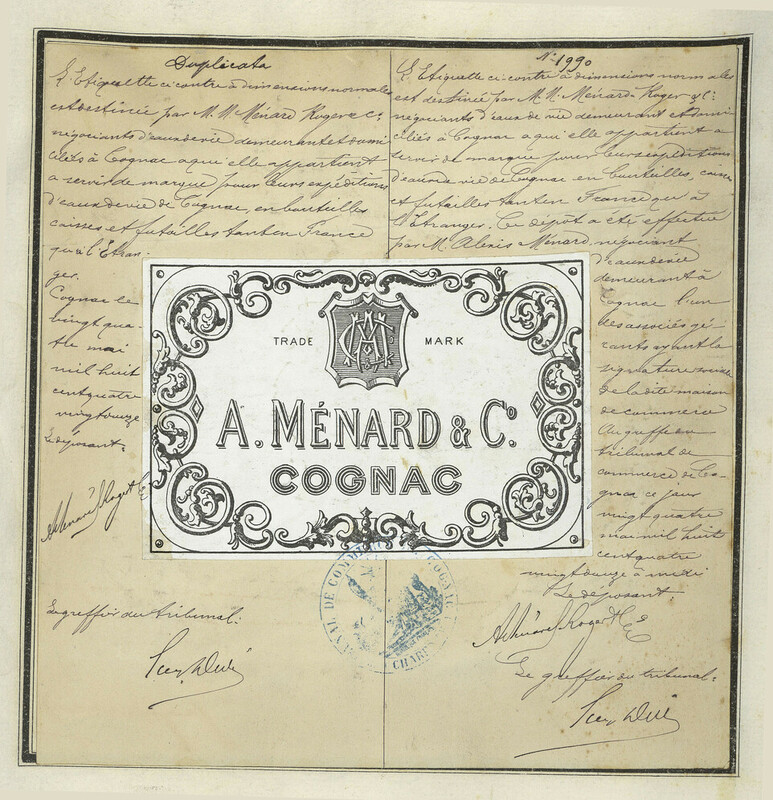 Duplicata
L'Etiquette ci contre à dimensions normales
est destinée par M. M Ménard Roger & Cie
négociants d'eaux de vie demeurant et domi
ciliés à Cognac a qui elle appartient
a servir de marque pour leurs expéditions
d'eaux de vie de Cognac, en bouteilles
caisses et futailles tant en France
qu'à l'Etran-
ger.
Cognac le
vingt qua-
tre mai
mil huit
cent quatre
vingt douze
Le déposant:
A Ménard Roger & Cie
Le greffier du tribunal:
No 1990
L'Etiquette ci contre à dimensions normales
est destinée par M. M. Ménard-Roger & Cie
négociants d'eaux de vie demeurant et domi
ciliés à Cognac a qui elle appartient a
servir de marque pour leurs expéditions
d'eaux de vie de Cognac en bouteilles, caisses
et futailles tant en France qu'à
l'Etranger. Ce dépôt a été effectué
par M. Alexis Ménard, négociant
d'eaux de vie
demeurant à
Cognac l'un
des associés gé-
rants ayant la
signature sociale
de la dite maison
de commerce
Au greffe du
tribunal de
commerce de Co-
gnac ce jour
vingt quatre
mai mil huit
cent quatre
vingt douze à midi
Le déposant:
A Ménard Roger & Cie
Le greffier du tribunal:
TRADE MARK
A. MÉNARD & Co.
COGNAC
DE COMM
COGNAC
CHARE